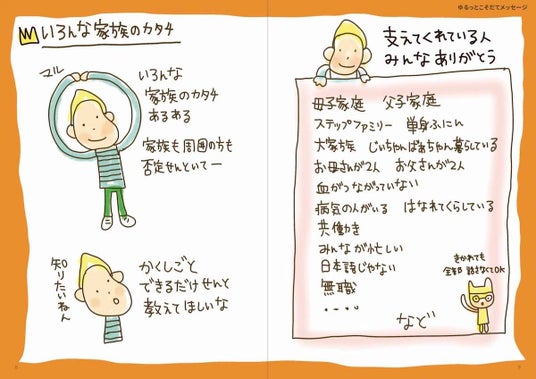 ゆるっとこそだてメッセージ
いろんな家族のカタチ
マル
いろんな
家族のカタチ
あるある
家族も周囲の方も
否定せんといてー
知りたいねん
かくしごと
できるだけせんと
教えてほしいな
支えてくれている人
みんなありがとう
母子家庭 父子家庭
ステップファミリー 単身ふにん
大家族 じいちゃんばあちゃん暮らしている
お母さんが2人 お父さんが2人
血がつながっていない
病気の人がいる はなれてくらしている
共働き
みんなが忙しい
日本語じゃない
無職
・・・・
など
きかれても
全部 話さなくてOK
8
9